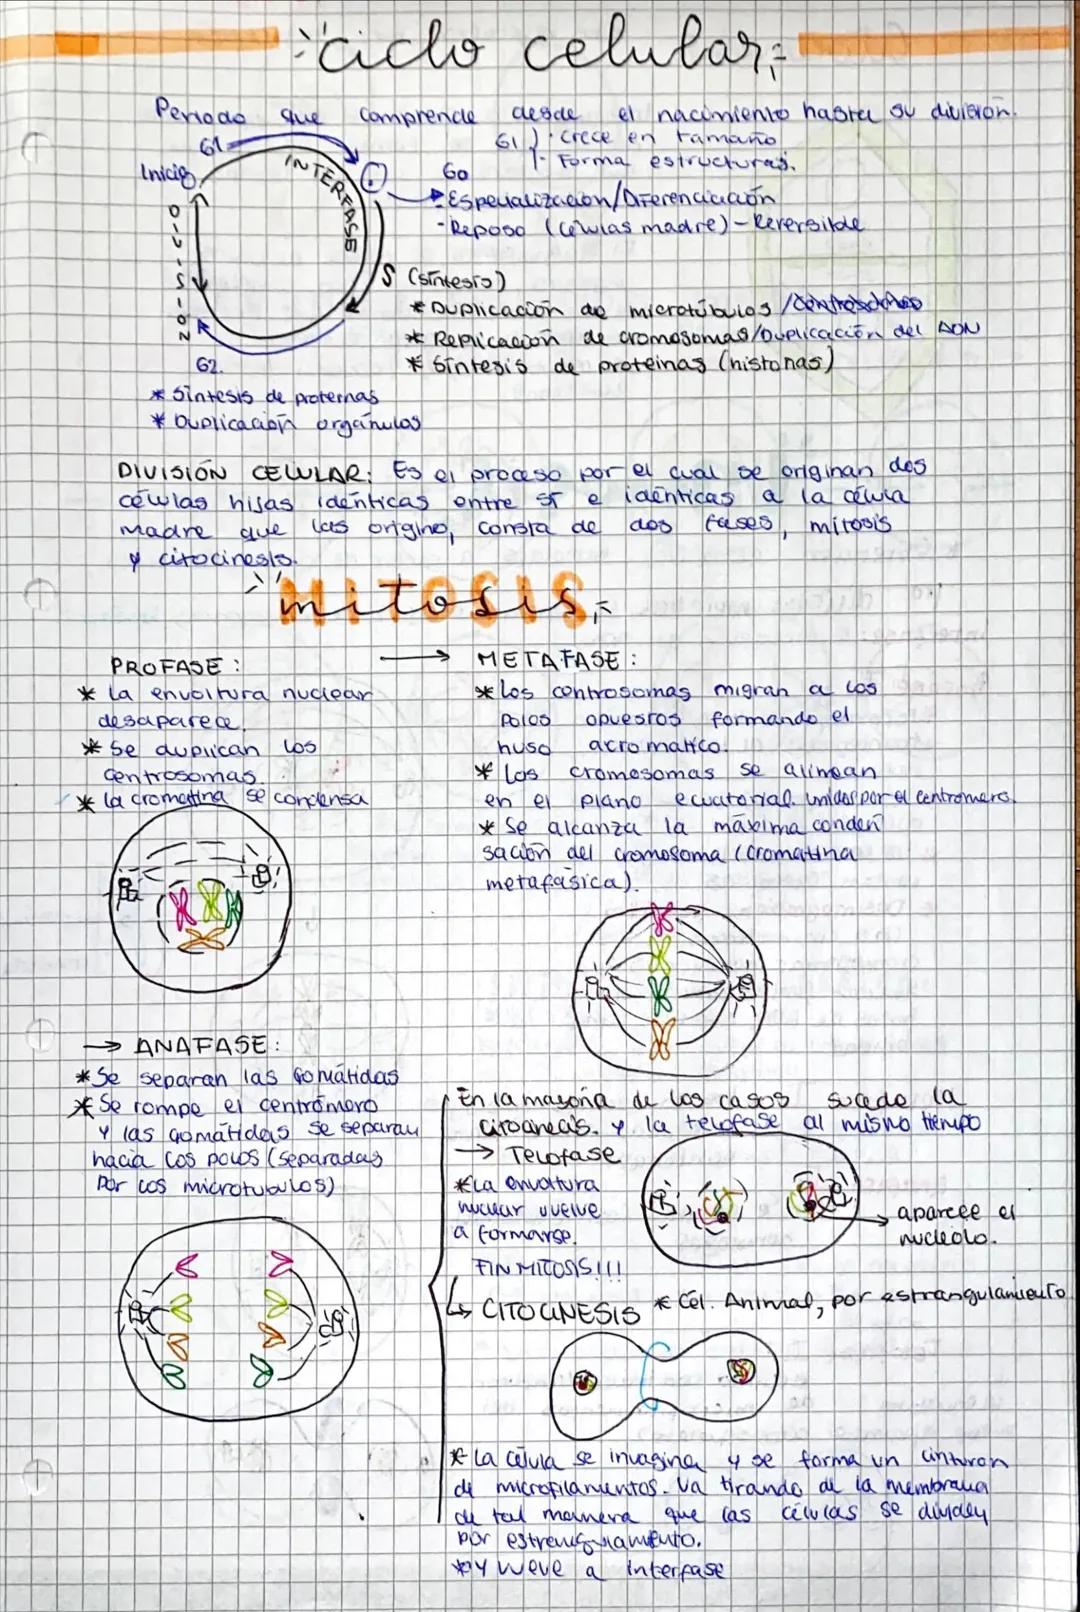 ciclo celular
Periodo que comprende desde el nacimiento hasta su división.
G1
G1) · Crece en tamaño
- Forma estructuras.
Inicio
INTERFASE
G0
- Especialización/Diferenciación
- Reposo (células madre) - Reversible
DIVISIÓN
S (síntesis)
* Duplicación de microtúbulos /
* Replicación de cromosomas/Duplicación del ADN
* Síntesis de proteínas (histonas)
G2.
* Síntesis de proteínas
* Duplicación orgánulos
DIVISIÓN CELULAR: Es el proceso por el cual se originan dos
células hijas idénticas entre sí e idénticas a la célula
madre que las origino, consta de dos fases, mitosis
y citocinesis.
MITOSIS
mitosis
PROFASE:
* La envoltura nuclear
desaparece.
* Se duplican los
centrosomas
* La cromatina se condensa
→ METAFASE:
* Los centrosomas migran a los
polos opuestos formando el
huso acromático.
* Los cromosomas se alinean
en el plano ecuatorial. unidos por el centromero.
* Se alcanza la máxima conden
sación del cromosoma (cromatina
metafásica).
→ ANAFASE:
* Se separan las cromátidas
* Se rompe el centrómero
y las cromátidas se separan
hacia los polos (separadas
por los microtubulos)
En la mayoría de los casos sucede la
citocinesis. y la telofase al mismo tiempo
→ Telofase
* La envoltura
nuclear vuelve
a formarse.
aparece el
nucleolo.
FIN MITOSIS!!!
↳ CITOCINESIS * Cél. Animal, por estrangulamiento
* La célula se invagina y se forma un cinturon
de microfilamentos. Va tirando de la membrana
de tal manera que las células se dividen
por estrangulamiento.
* Y vuelve a interfase